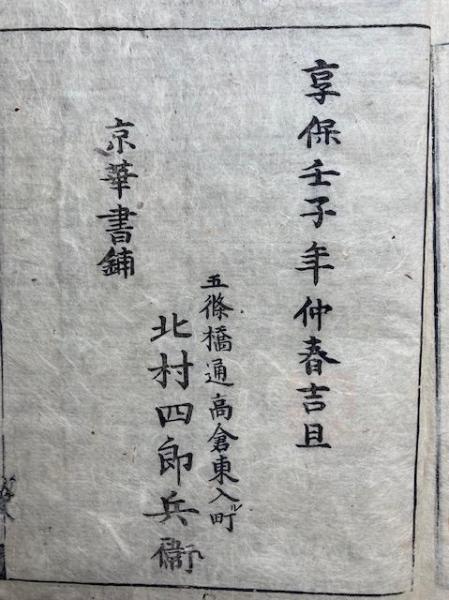 享保壬子年仲春吉旦
京華書鋪
五條橋通高倉東入ル町
北村四郎兵衞